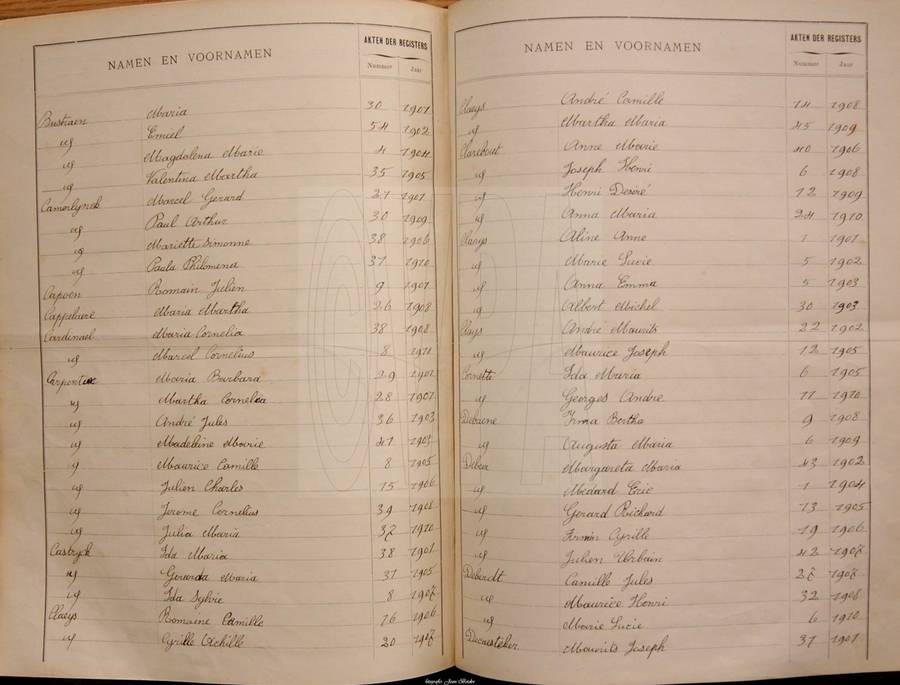 NAMEN EN VOORNAMEN AKTEN DER REGISTERS
Nummer Jaar
Bustraen Maria 30 1901
id Emiel 54 1902
id Magdalena Marie 4 1904
id Valentina Martha 35 1905
Camerlynck Marcel Gerard 27 1901
id Paul Arthur 30 1909
id Mariette Simonne 38 1906
id Paula Philomena 31 1910
Capoen Romain Julien 9 1901
Cappelaere Maria Martha 26 1908
Cardinael Maria Cornelia 38 1908
id Marcel Cornelius 8 1911
Carpentier Maria Barbara 29 1901
id Martha Cornelia 28 1901
id André Jules 36 1903
id Madeleine Marie 41
id Maurice Camille 8 1905
id Julien Charles 15 1906
id Jerome Cornelius 39 1908
id Julia Maria 32 1910
Castryck Ida Maria 38 1901
id Gerarda Maria 31 1905
id Ida Sylvie 8 1907
Claeys Romanie Camille 16 1906
id Cyrille Achille 20 1907
NAMEN EN VOORNAMEN AKTEN DER REGISTERS
Nummer Jaar
Claeys André Camille 14 1908
id Martha Maria 45 1909
Clarebout Anne Marie 40 1906
id Joseph Henri 6 1908
id Henri Desiré 12 1909
id Anna Maria 24 1910
Clarys Aline Anne 1 1901
id Marie Lucie 5 1902
id Anna Emma 5 1903
id Albert Michel 30 1903
Clays André Maurits 22 1902
id Maurice Joseph 12 1905
Cornette Ida Maria 6 1905
id Georges Andre 11 1910
Debaene Irma Bertha 9 1908
id Augusta Maria 6 1909
Margareta Maria 43 1902
id Medard Eric 1 1904
id Gerard Richard 13 1905
id Firmin Cyrille 19 1906
id Julien Urbain 42 1907
Deberdt Camille Jules 27 1907
id Maurice Henri 32 1908
Marie Lucie 6 1910
Decaesteker Maurits Joseph 31 1901